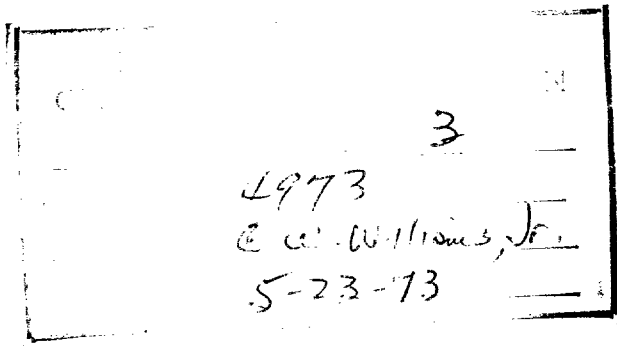 3
4973
C. W. Williams, Jr.
5-23-73